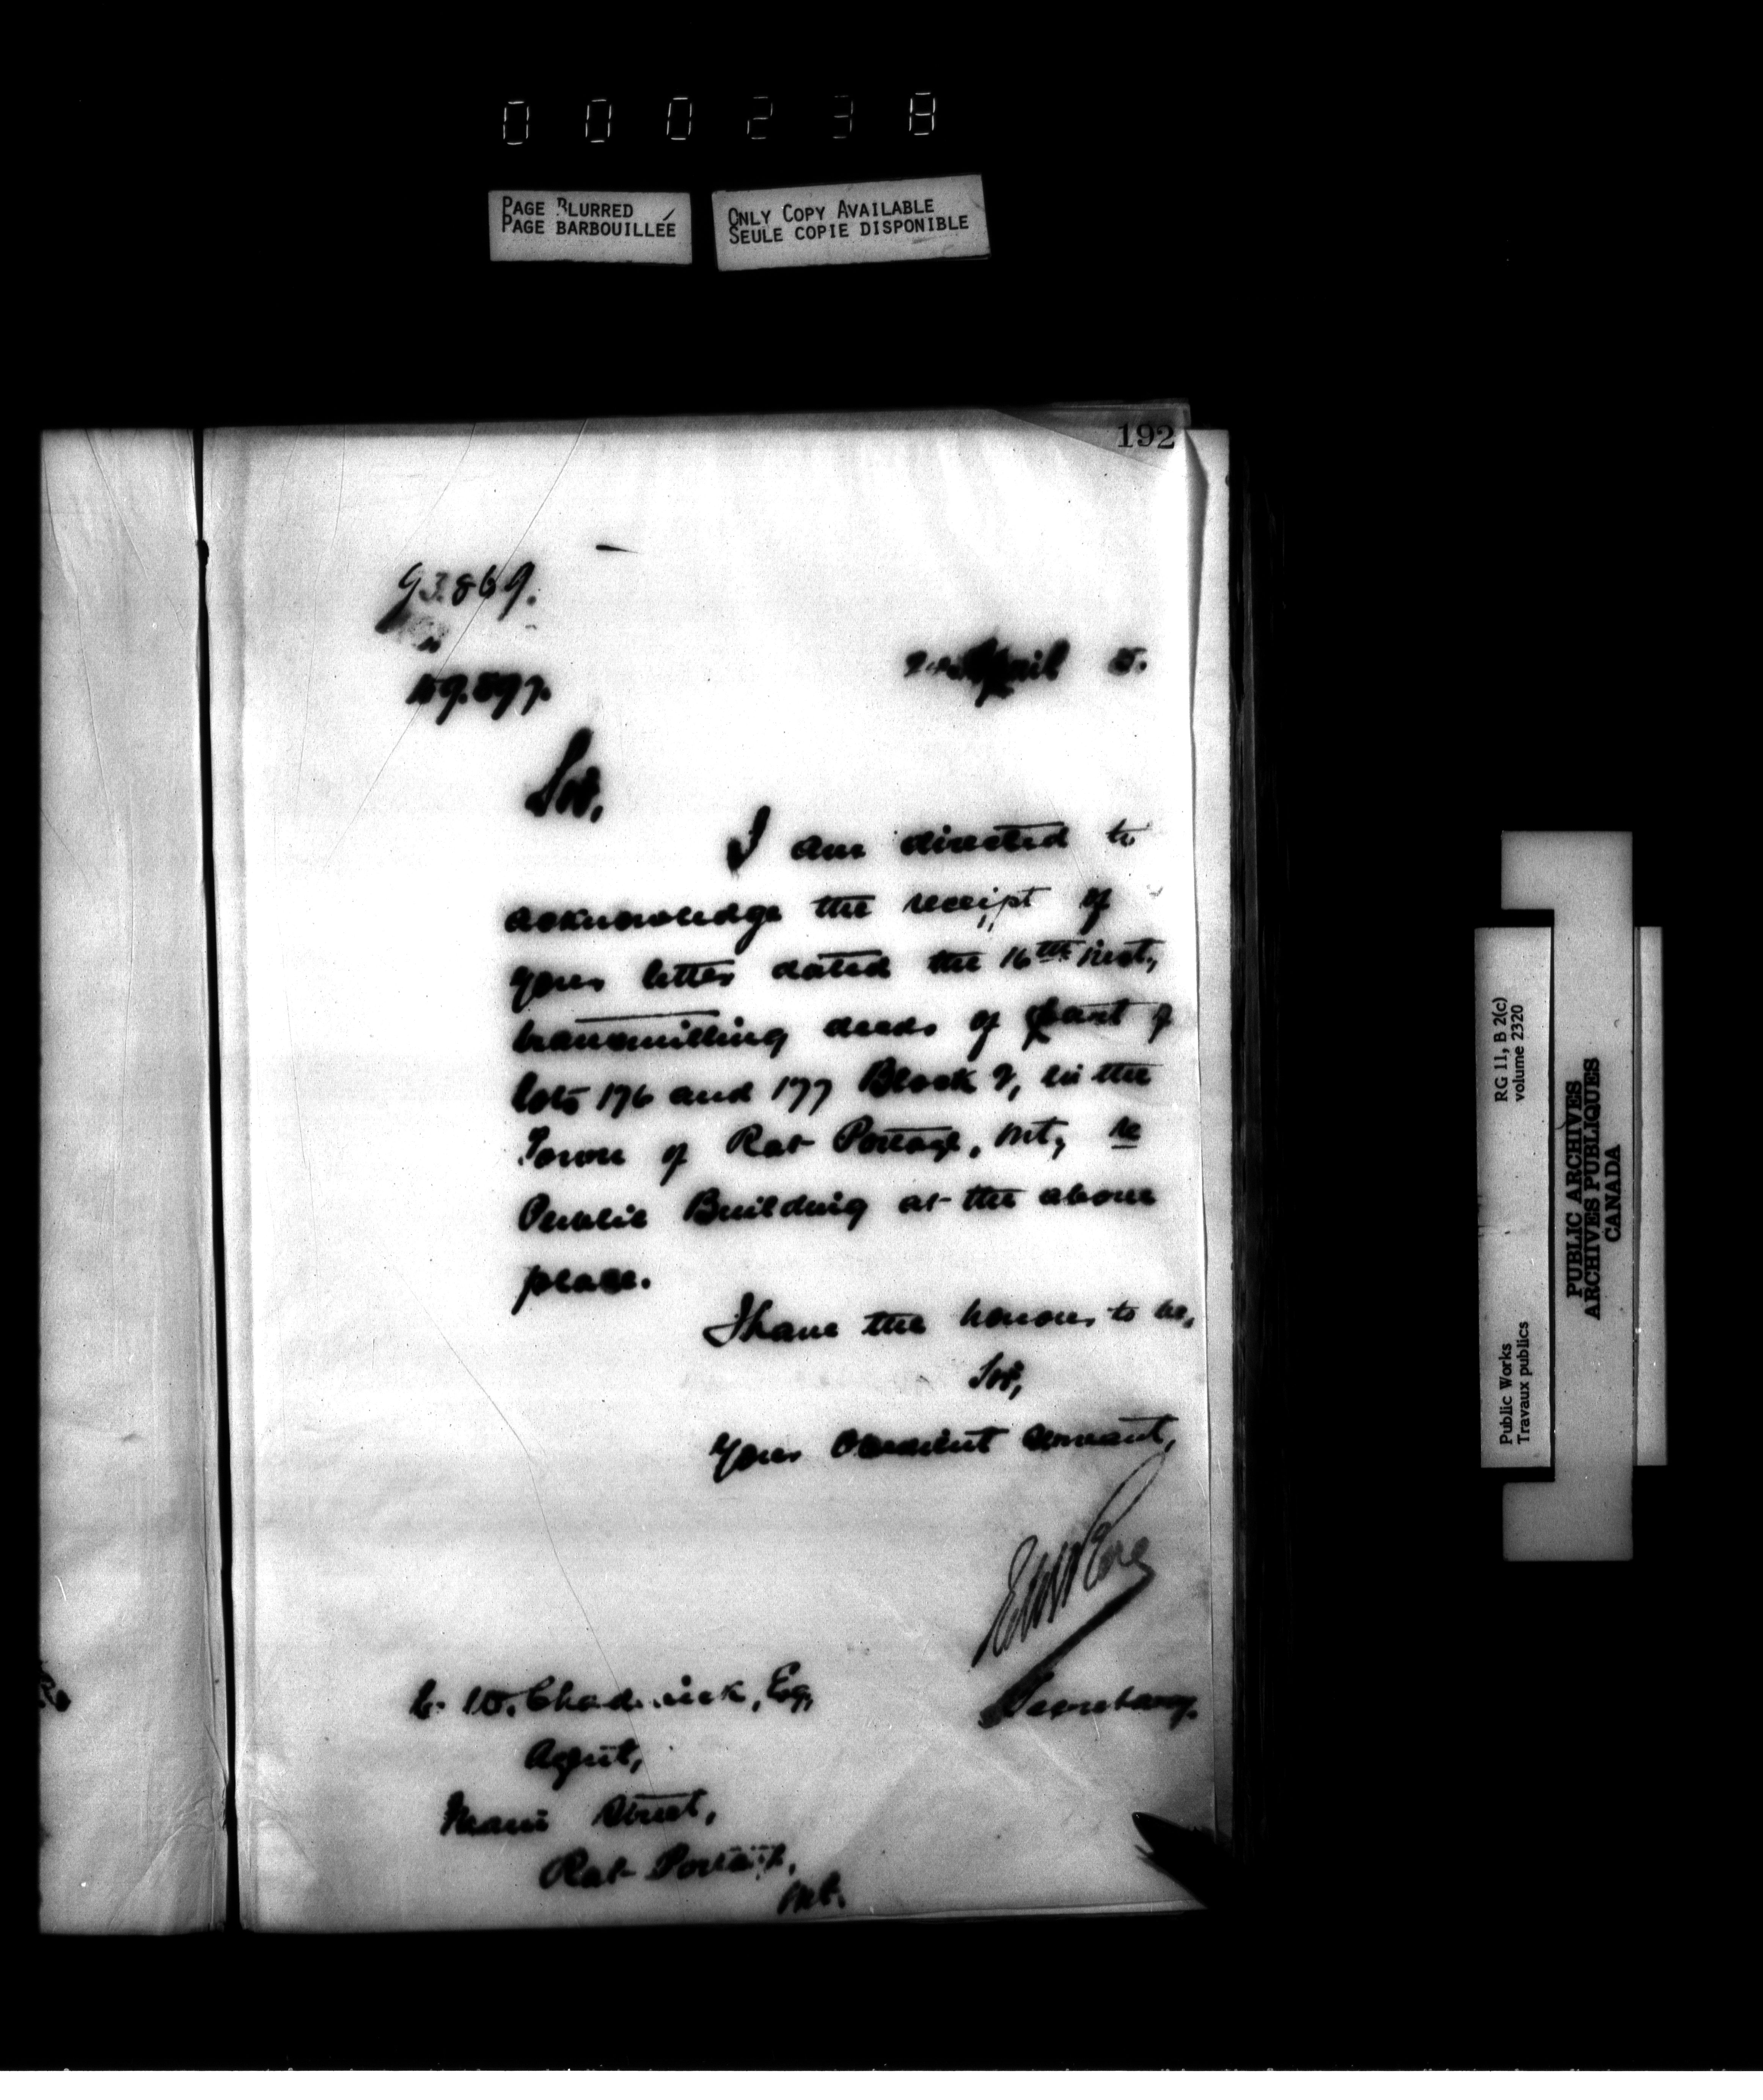 000238
PAGE BLURRED
PAGE BARBOUILLÉE
ONLY COPY AVAILABLE
SEULE COPIE DISPONIBLE
192
93.869.
159.597.
April 5.
Sir,
I am directed to
acknowledge the receipt of
your letter dated the 16th inst,
transmitting deeds of part of
lots 176 and 177 Block 2, in the
Town of Rat Portage, Ont, re
Public Building at the above
place.
I have the honour to be,
Sir,
Your obedient servant,
Secretary.
C. W. Chadwick, Esq,
Agent,
Main Street,
Rat Portage,
Ont.
Public Works
Travaux publics
RG 11, B 2(c)
volume 2320
PUBLIC ARCHIVES
ARCHIVES PUBLIQUES
CANADA